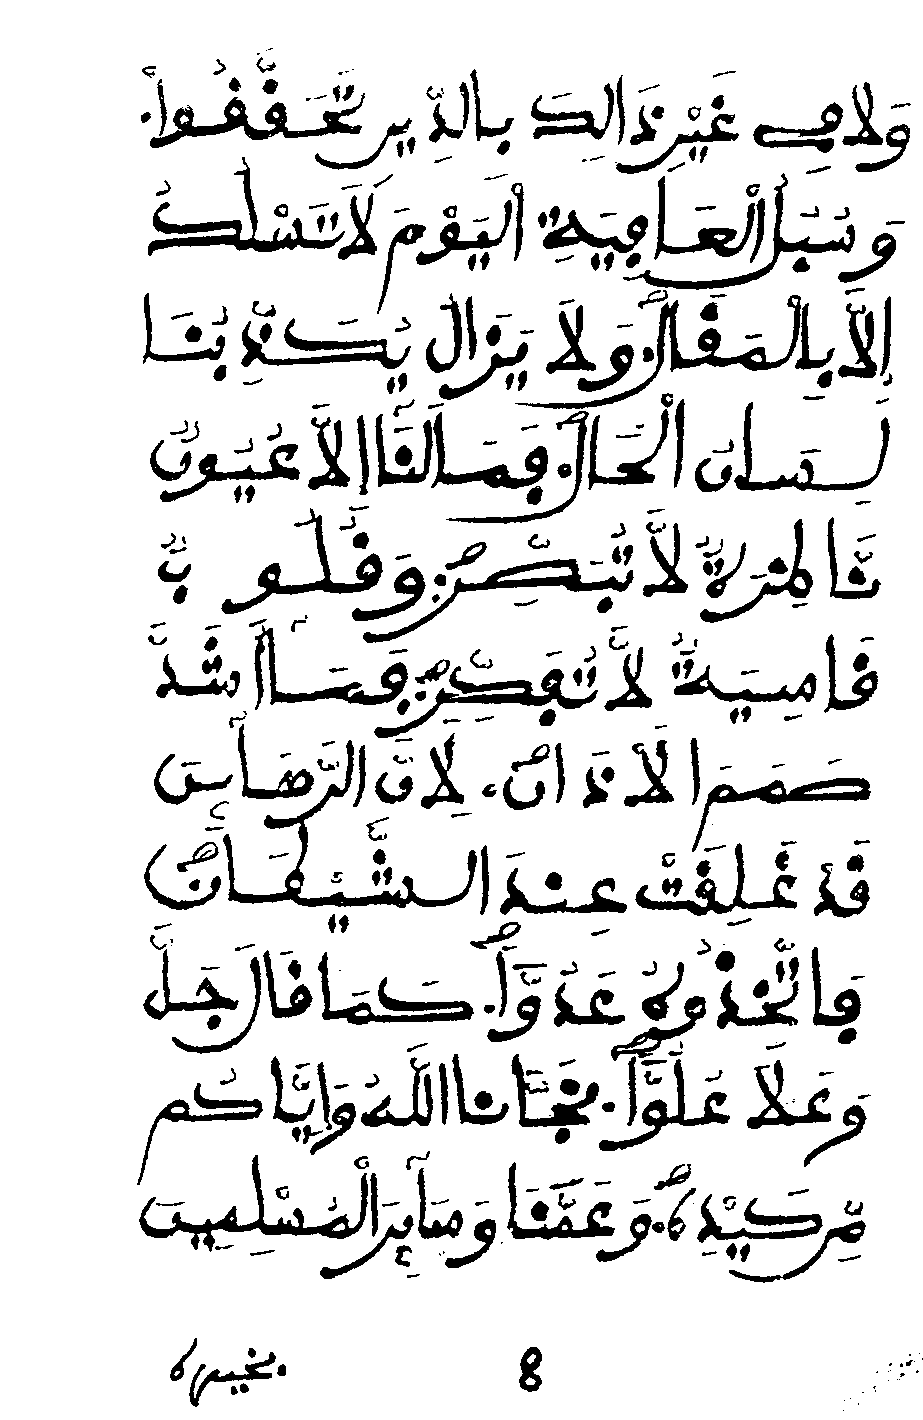 وَلَا فِي غَيْرِ ذَالِكَ بِالذِينَ تَحَقَّقُوا.
وَسُبُلُ الْعَافِيَةِ الْيَوْمَ لَا تُسْلَكُ
إِلَّا بِالْمَقَالِ. وَلَا يَزَالُ يُكَذِّبُنَا
لِسَانُ الْحَالِ. فَمَا لَنَا إِلَّا عُيُونٌ
نَاظِرَةٌ لَا تُبْصِرُ. وَقُلُوبٌ
قَاسِيَةٌ لَا تُفَكِّرُ. فَمَا أَشَدَّ
صَمَمَ الْآذَانِ. لِأَنَّ الرَّصَاصَ
قَدْ غُلِقَتْ عِنْدَ الشَّيْطَانِ
فَاتَّخِذُوهُ عَدُوًّا. كَمَا قَالَ جَلَّ
وَعَلَا عُلُوًّا. نَجَّانَا اللَّهُ وَإِيَّاكُمْ
مِنْ كَيْدِهِ. وَعَمَّنَا وَسَائِرَ الْمُسْلِمِينَ
8
بخيره